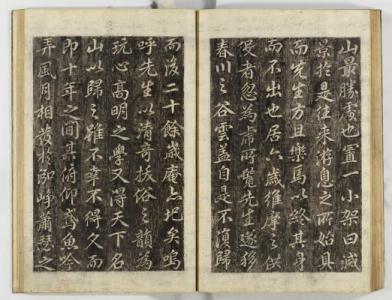 山最勝處也置一小架曰咸
景於是往來游息之所始具
而先生方且樂焉以終其身
而不出也居六歲稚摩之供
侵者忽爲虎所覽先生遂移
春川之谷雲盖自是不復歸
而後二十餘歲庵亦圯矣嗚
呼先生以清奇拔俗之韻爲
玩心高明之學又得天下名
山以歸之雖不幸不得久而
即十年之間其俯仰鳶魚吟
弄風月相羨於卽崢蕭瑟之